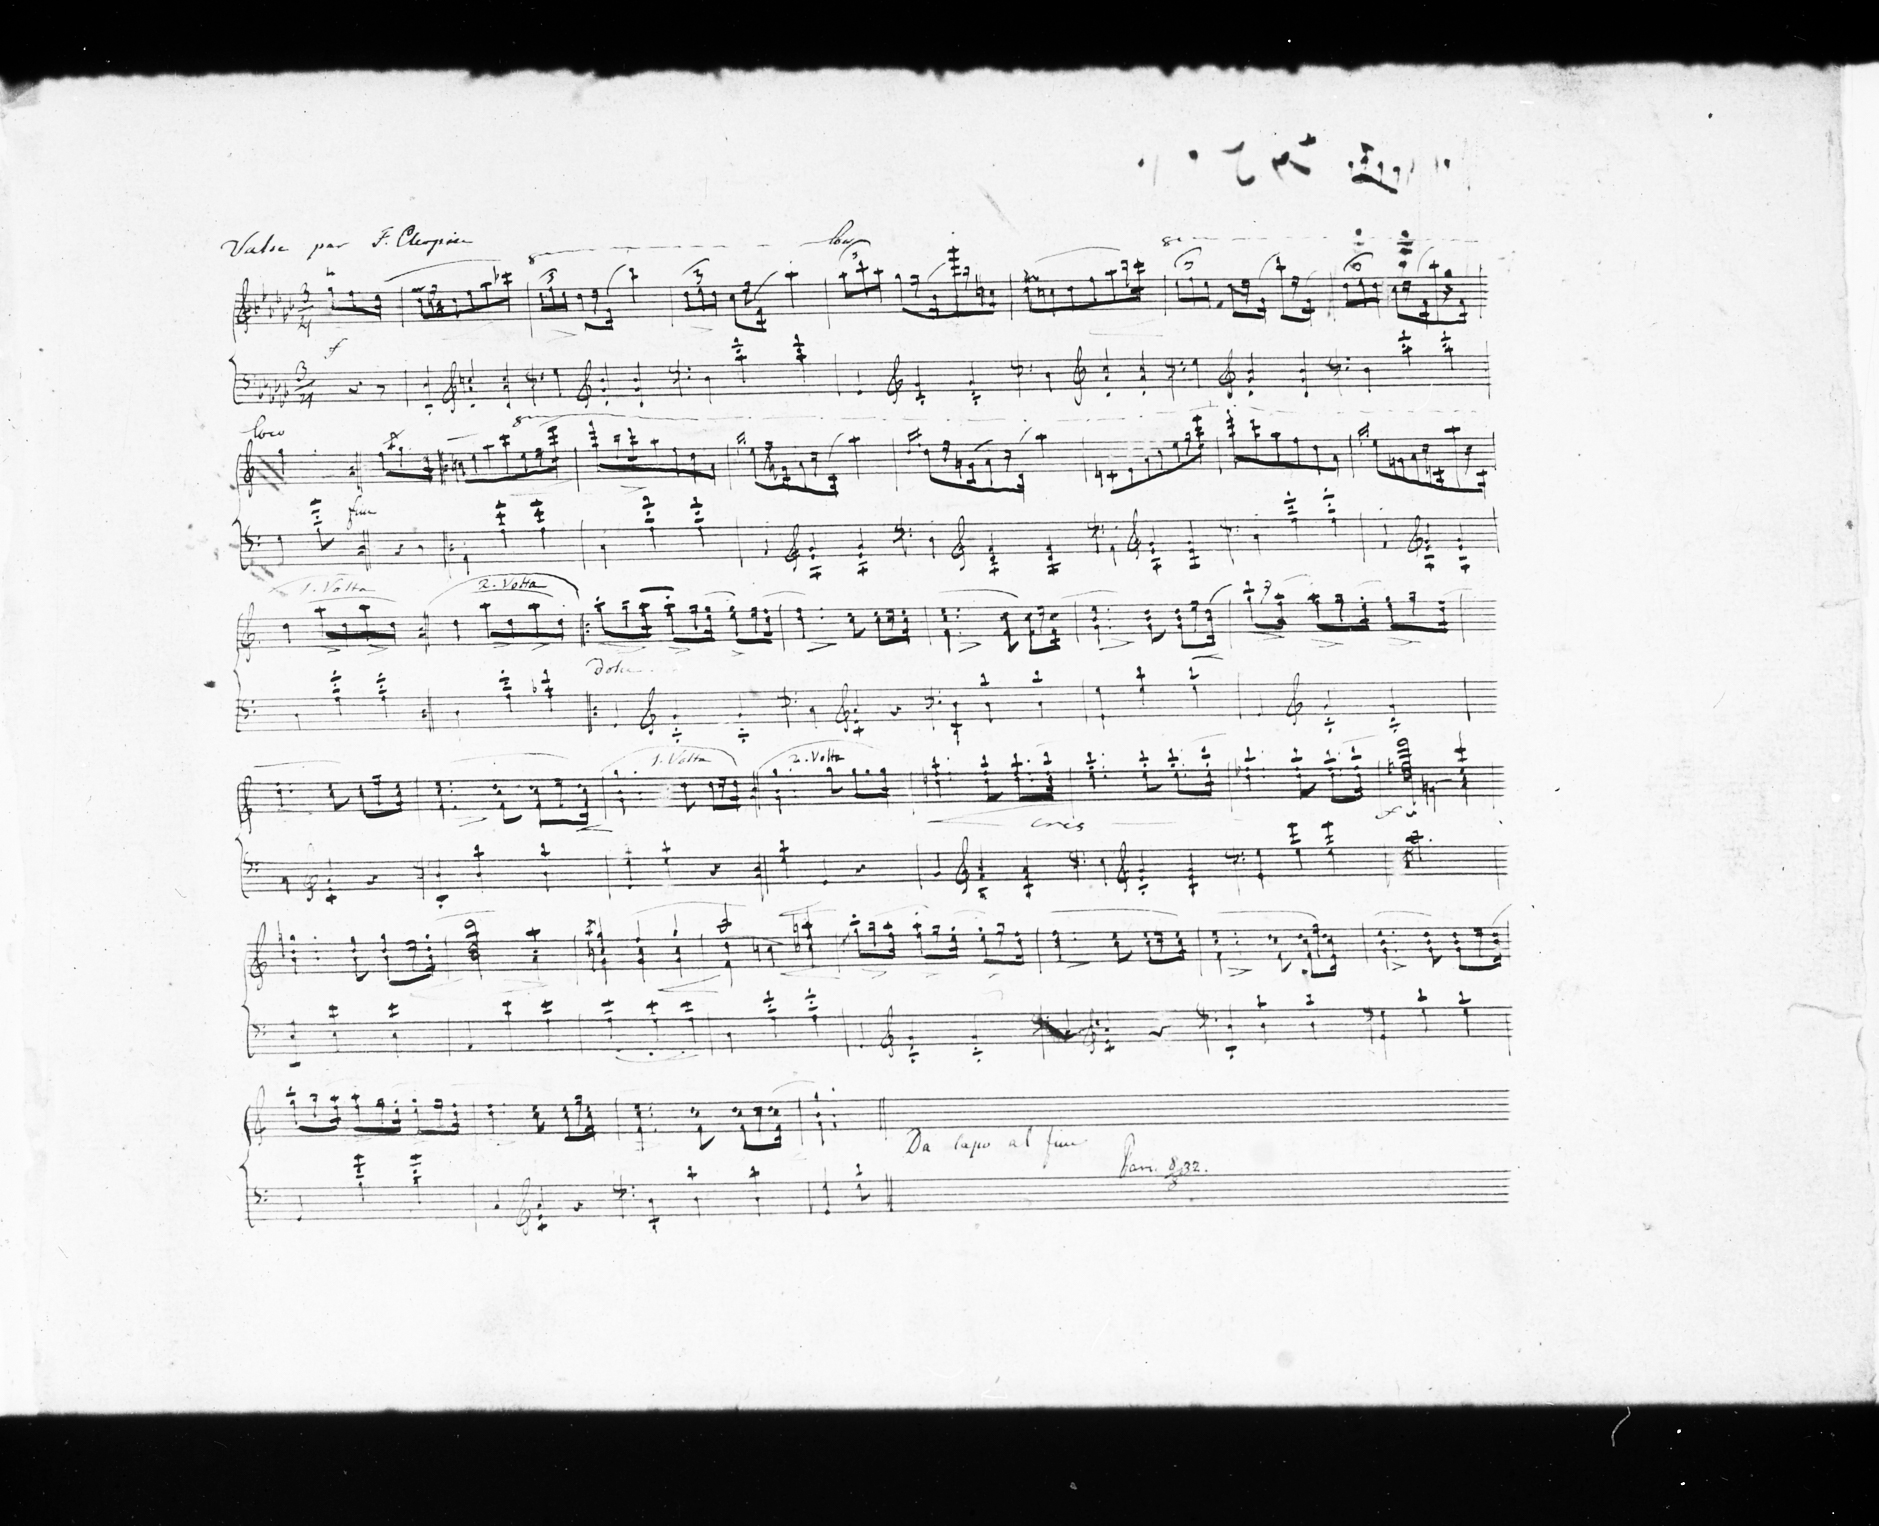 Valse par F. Chopin
8va loco 8va
3 3 3 3 6
3/4 f
3/4
loco 8va
fine
1. Volta 2. Volta
dolce
1. Volta 2. Volta
cres
f
Da capo al fine
Par. 8/8 32.